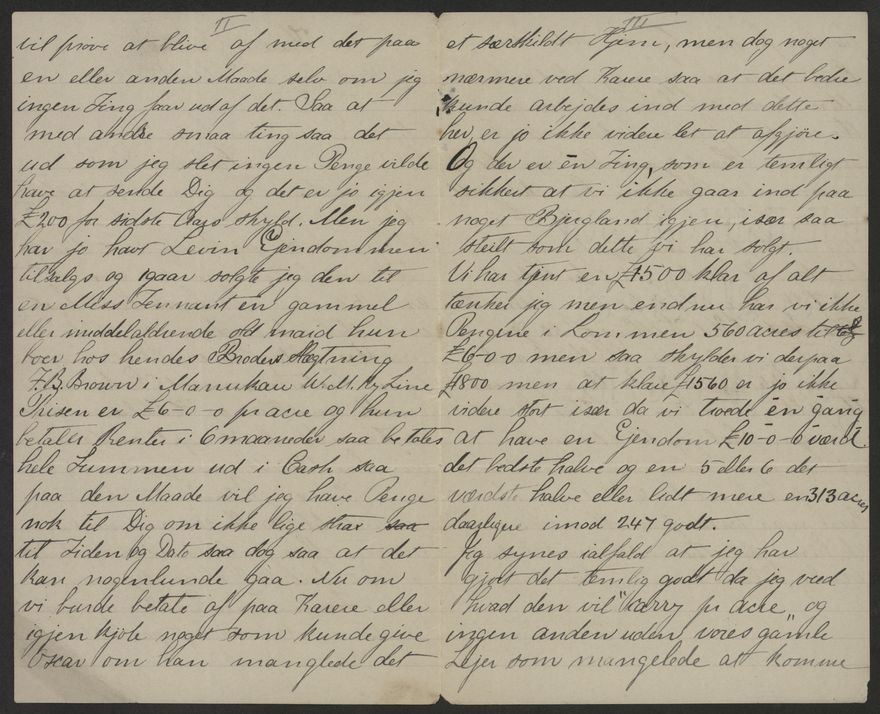 II
vil prøve at blive af med det paa
en eller anden Maade selv om jeg
ingen Ting faar ud af det. Saa at
med andre smaa ting saa det
ud som jeg slet ingen Penge vilde
have at sende Dig og det er jo igjen
£200 for sidste Aars skyld. Men jeg
har jo havt Levin Ejendommen
tilsalgs og igaar solgte jeg den til
en Miss Tennant en gammel
eller middelaldrende old maid hun
boer hos hendes Broders Slægtning
F. B. Brown i Manukau W. M. Ry Line
Prisen er £6-0-0 pr acre og hun
betaler Renter i 6 maaneder saa betales
hele Summen ud i Cash saa
paa den Maade vil jeg have Penge
nok til Dig om ikke lige strax saa
til Tiden og Dato saa dog saa at det
kan nogenlunde gaa. Nu om
vi burde betale af paa Karere eller
igjen kjøbe noget som kunde give
Oscar om han manglede det
III
et særskildt Hjem, men dog noget
nærmere ved Karere saa at det bedre
kunde arbejdes ind med dette
her, er jo ikke videre let at afgjøre.
Og der er én Ting, som er temligt
sikkert at vi ikke gaar ind paa
noget Bjergland igjen, især saa
steilt som dette vi har solgt.
Vi har tjent en £1500 klar af alt
tænker jeg men endnu har vi ikke
Pengene i Lommen 560 acres til
£6-0-0 men saa skylder vi derpaa
£1800 men at klare £1560 er jo ikke
videre stort især da vi troede én gang
at have en Ejendom £10-0-0 værd
det bedste halve og en 5 eller 6 det
værdste halve eller lidt mere en 313 acres
daarligere imod 247 godt.
Jeg synes ialfald at jeg har
gjort det temlig godt da jeg veed
hvad den vil "carry pr acre" og
ingen anden uden vores gamle
Lejer som mangelede at komme